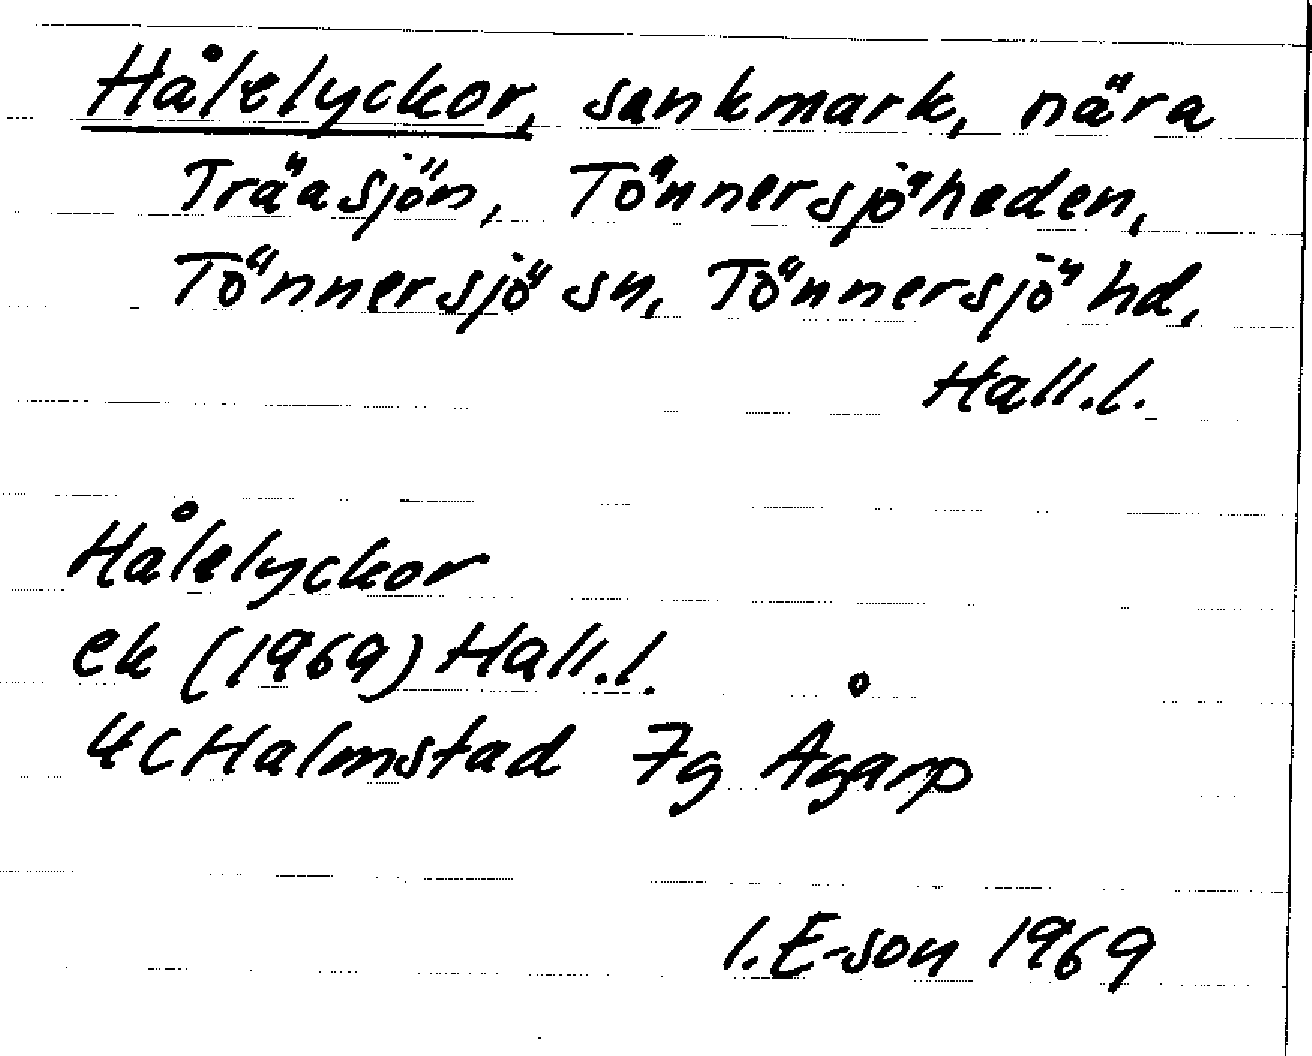 Hålelyckor, sankmark, nära
Träasjön, Tönnersjöheden,
Tönnersjö sn, Tönnersjö hd,
Hall.l.
Hålelyckor
ek (1969) Hall.l.
4C Halmstad 7g Ågarp
I. E-son 1969